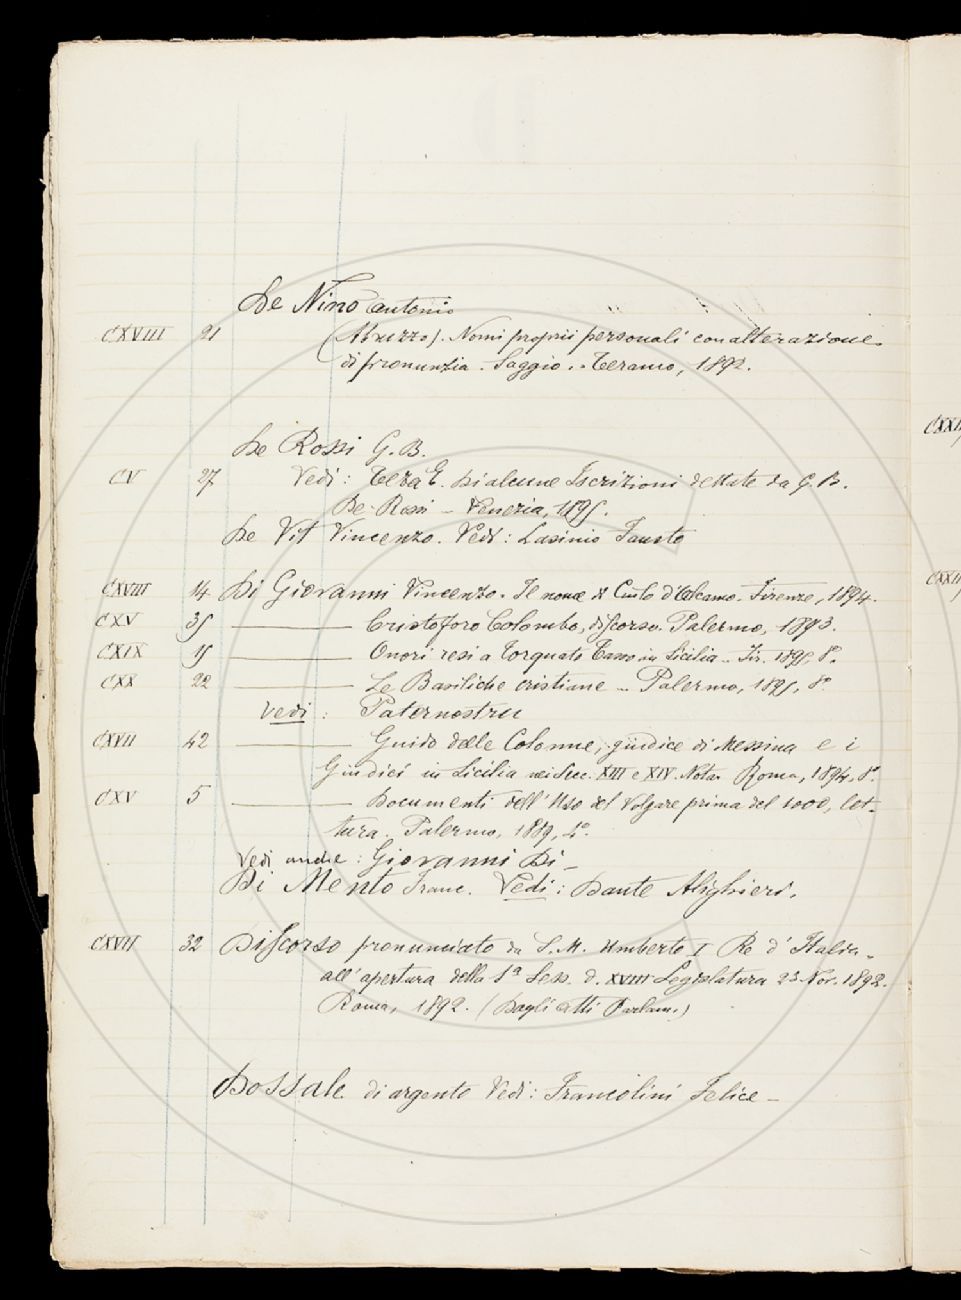 De Nino Antonio
CXVIII 21 (Abruzzo). Nomi proprii personali con alterazione
di pronunzia. Saggio. - Teramo, 1892.
De Rossi G. B.
CV 27 Vedi: Teza E. Di alcune Iscrizioni dettate da G. B.
De-Rossi - Venezia, 1895.
De Vit Vincenzo. Vedi: Lasinio Fausto
CXVIII 14 Di Giovanni Vincenzo. Il nome di Ciullo d'Alcamo. Firenze, 1894.
CXV 35 ——— Cristoforo Colombo, discorso. Palermo, 1893.
CXIX 15 ——— Onori resi a Torquato Tasso in Sicilia - Fir. 1895, 8°.
CXX 22 ——— Le Basiliche cristiane - Palermo, 1895, 8°.
Vedi: Paternostru
CXVII 42 ——— Guido delle Colonne, giudice di Messina e i
Giudici in Sicilia nei Sec. XIII e XIV. Nota. Roma, 1894, 8°.
CXV 5 ——— Documenti dell'Uso del Volgare prima del 1000, let-
tura. Palermo, 1889, 4°.
Vedi anche: Giovanni Di -
Di Mento Franc. Vedi: Dante Alighieri.
CXVII 32 Discorso pronunciato da S. M. Umberto I Re d'Italia
all'apertura della 1ª Sess. d. XVIII Legislatura 23 Nov. 1892.
Roma, 1892. (Dagli Atti Parlam.)
Dossale di argento Vedi: Francolini Felice -
CXXI
CXXII